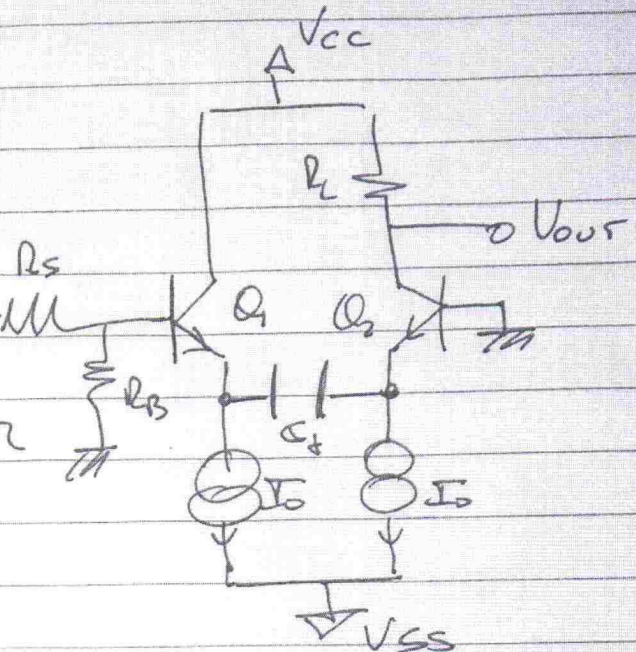 Vcc
RL
Vout
Rs
Q1
Q2
RB
Cf
Io
Io
Vss